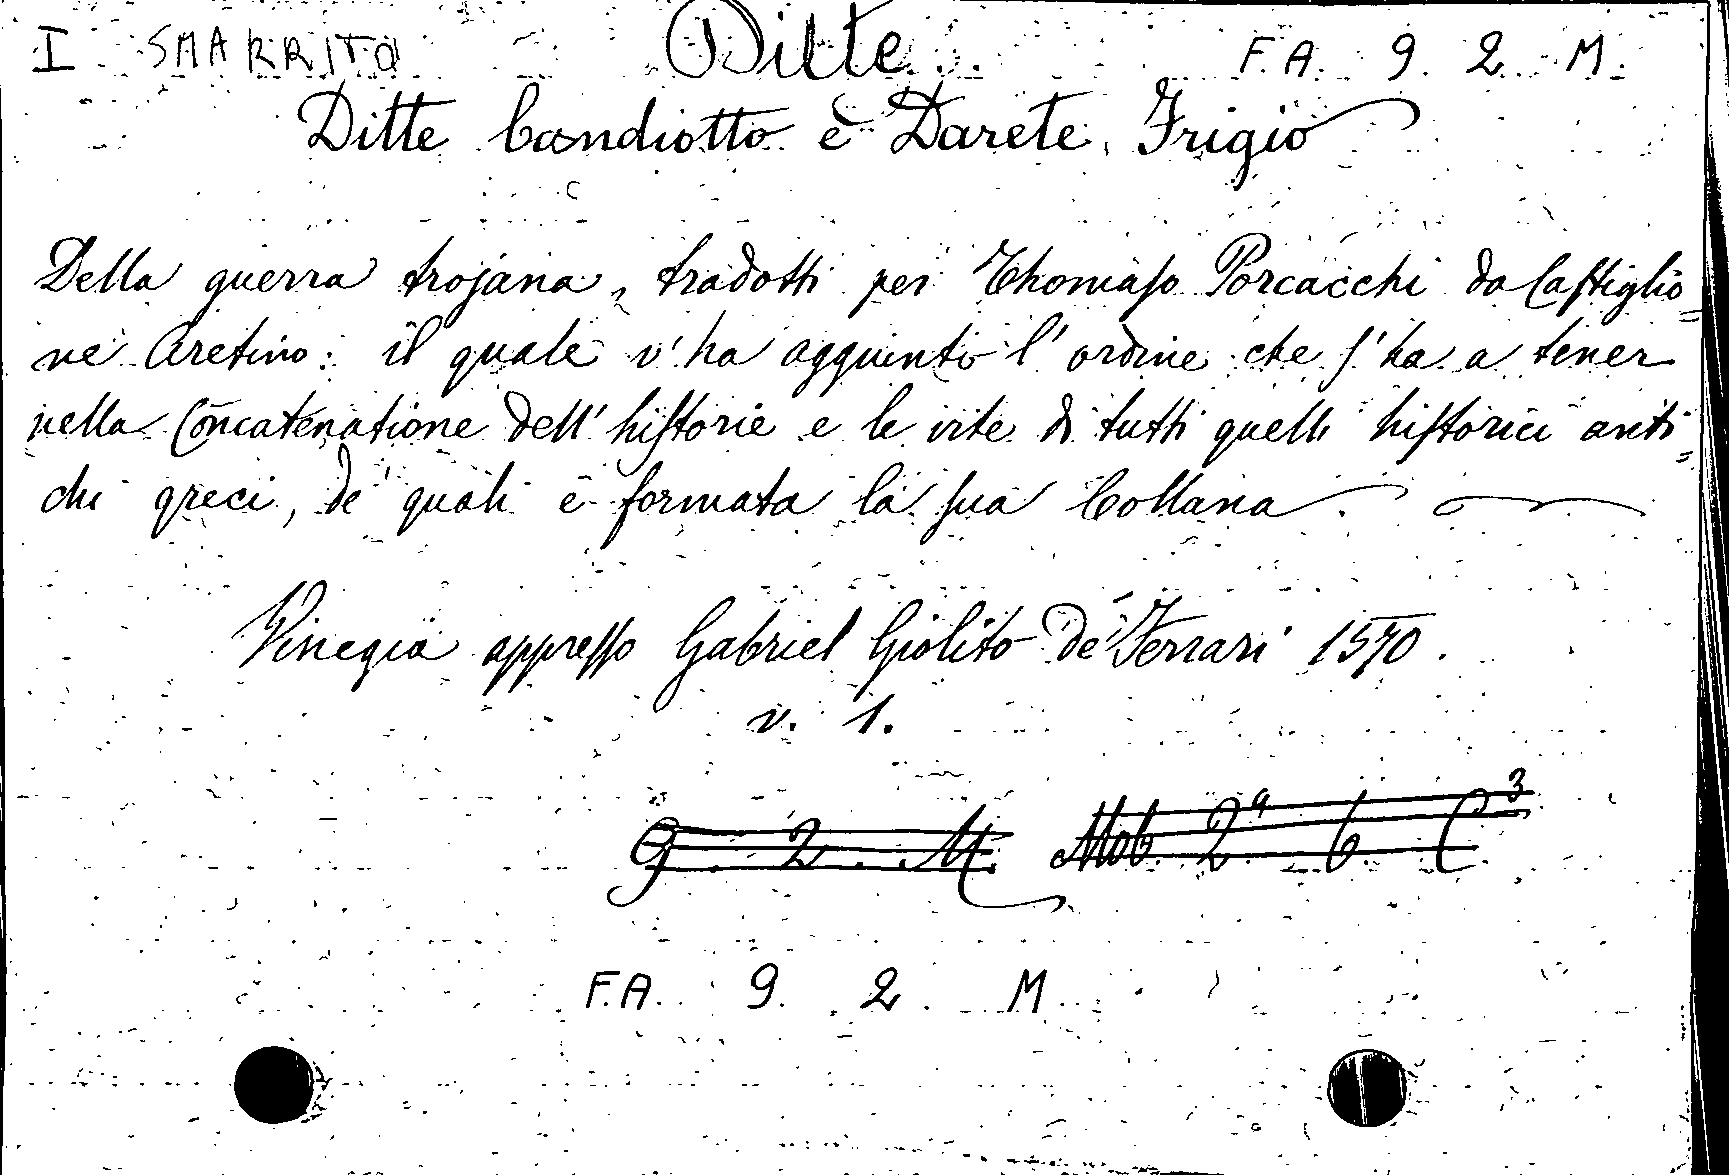 I SMARRITO Ditte F.A. 9. 2. M.
Ditte Candiotto e Darete Frigio
Della guerra trojana, tradotti per Thomaſo Porcacchi da Caſtiglio=
ne Aretino: il quale v'ha aggiunto l'ordine che ſ'ha a tener
nella Concatenatione dell'hiſtorie e le vite di tutti quelli hiſtorici anti=
chi greci, de' quali è formata la ſua Collana.
Vinegia appreſſo Gabriel Giolito de' Ferrari 1570.
v. 1.
9. 2. M. Mob. 2ª b C³
F.A. 9. 2. M